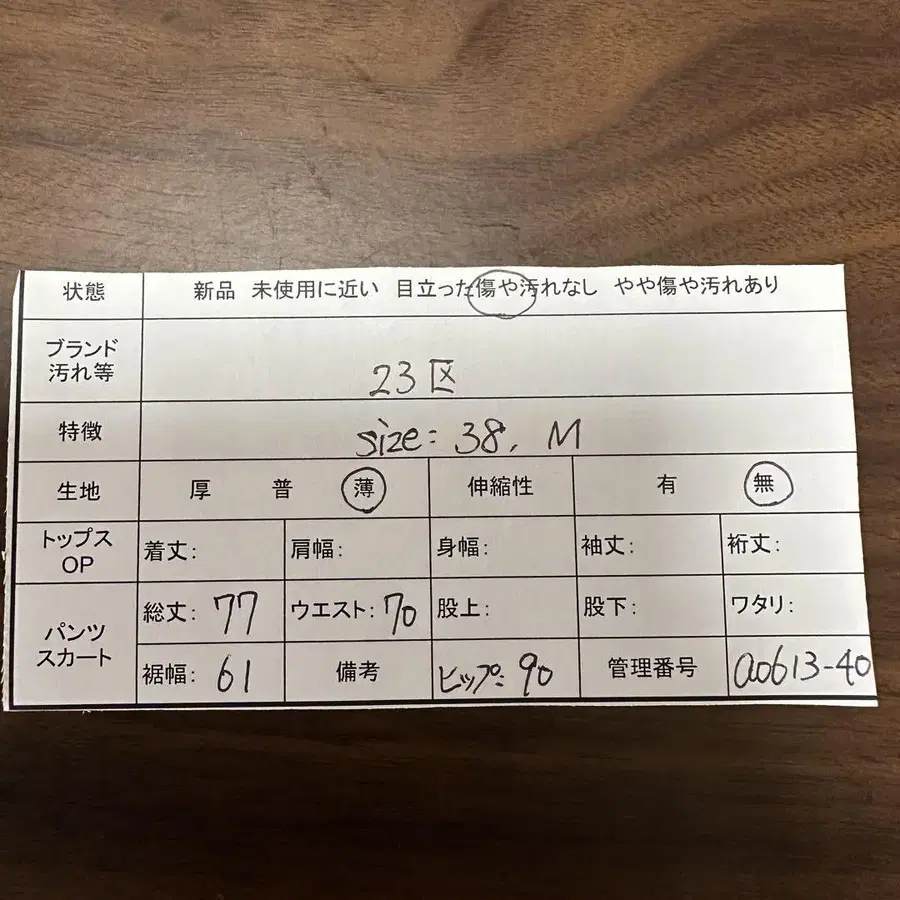 状態 新品 未使用に近い 目立った傷や汚れなし やや傷や汚れあり
ブランド
汚れ等
23区
特徴 size: 38, M
生地 厚 普 薄 伸縮性 有 無
トップス
OP
着丈: 肩幅: 身幅: 袖丈: 裄丈:
パンツ
スカート
総丈: 77 ウエスト: 70 股上: 股下: ワタリ:
裾幅: 61 備考 ヒップ: 90 管理番号 a0613-40